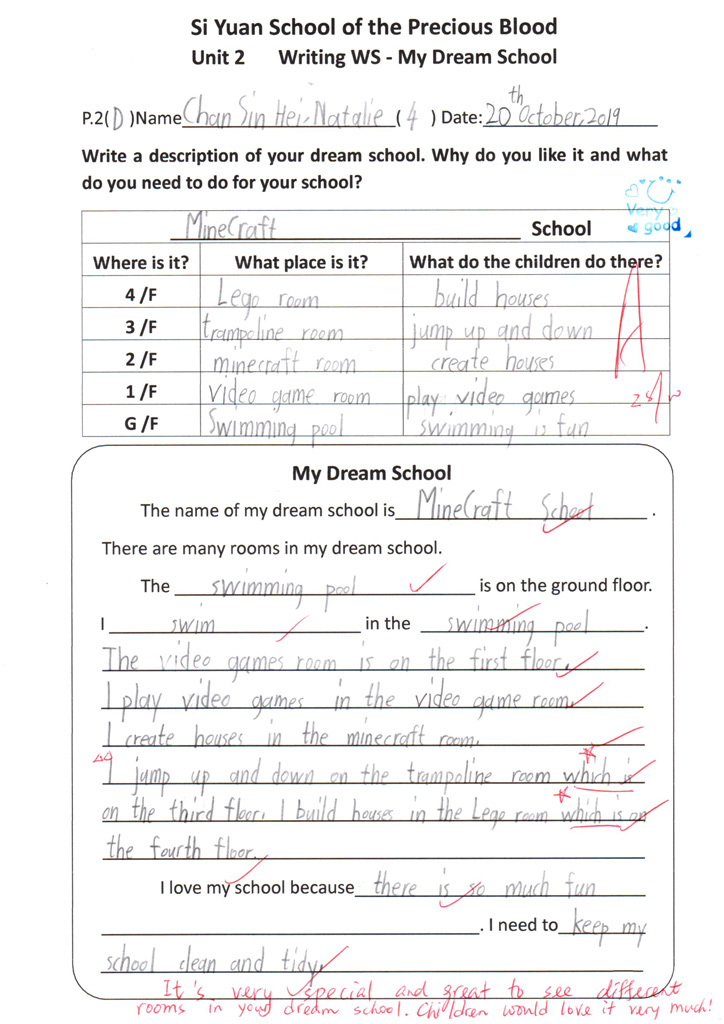 Si Yuan School of the Precious Blood
Unit 2 Writing WS - My Dream School
P.2(D)Name Chan Sin Hei, Natalie (4) Date: 20th October, 2019
Write a description of your dream school. Why do you like it and what
do you need to do for your school?
Very good
MineCraft School
Where is it? What place is it? What do the children do there?
4 /F Lego room build houses
3 /F trampoline room jump up and down
2 /F minecraft room create houses
1 /F video game room play video games
G /F Swimming pool swimming is fun
A
My Dream School
The name of my dream school is MineCraft School.
There are many rooms in my dream school.
The swimming pool is on the ground floor.
I swim in the swimming pool.
The video games room is on the first floor.
I play video games in the video game room.
I create houses in the minecraft room.
I jump up and down on the trampoline room which is
on the third floor. I build houses in the Lego room which is on
the fourth floor.
I love my school because there is so much fun
. I need to keep my
school clean and tidy.
It's very special and great to see different
rooms in your dream school. Children would love it very much!